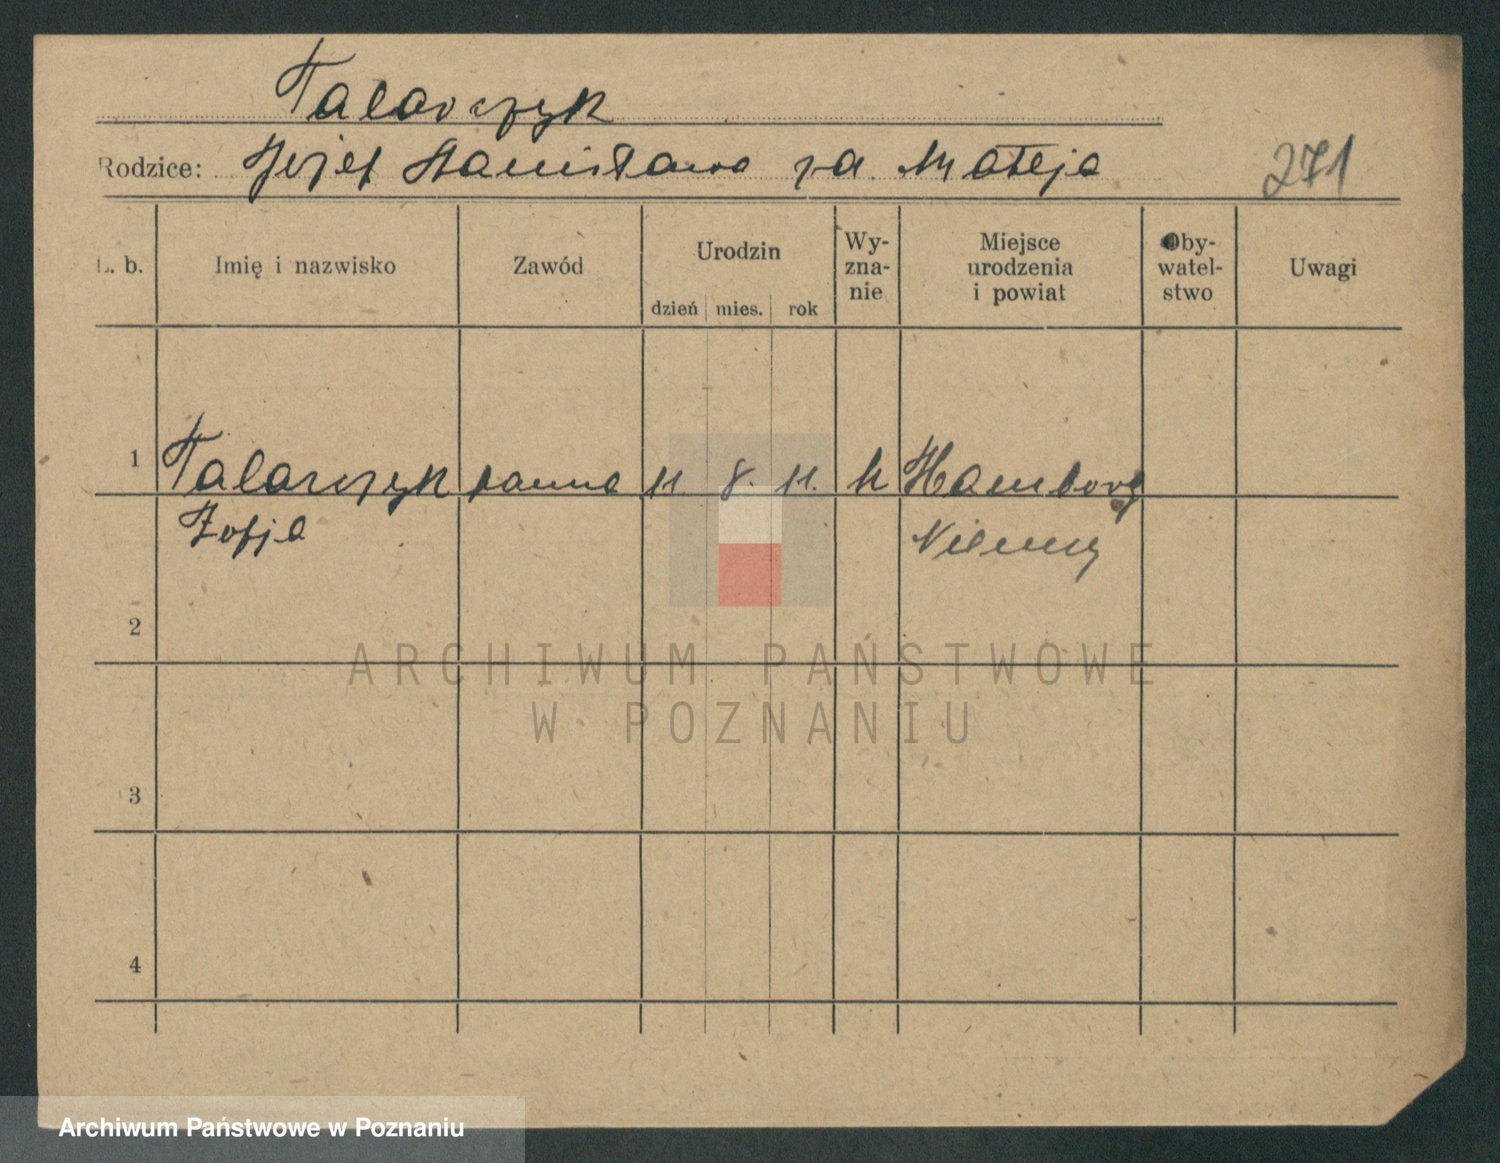 Talarczyk
Rodzice: Józef Stanisława za Mateja
271
L. b.
Imię i nazwisko
Zawód
Urodzin
dzień mies. rok
Wy-
zna-
nie
Miejsce
urodzenia
i powiat
Oby-
watel-
stwo
Uwagi
1 Talarczyk panna 11. 8. 11. k Hamborg
Zofja Niemcy
2
3
4
ARCHIWUM PAŃSTWOWE
W POZNANIU
Archiwum Państwowe w Poznaniu